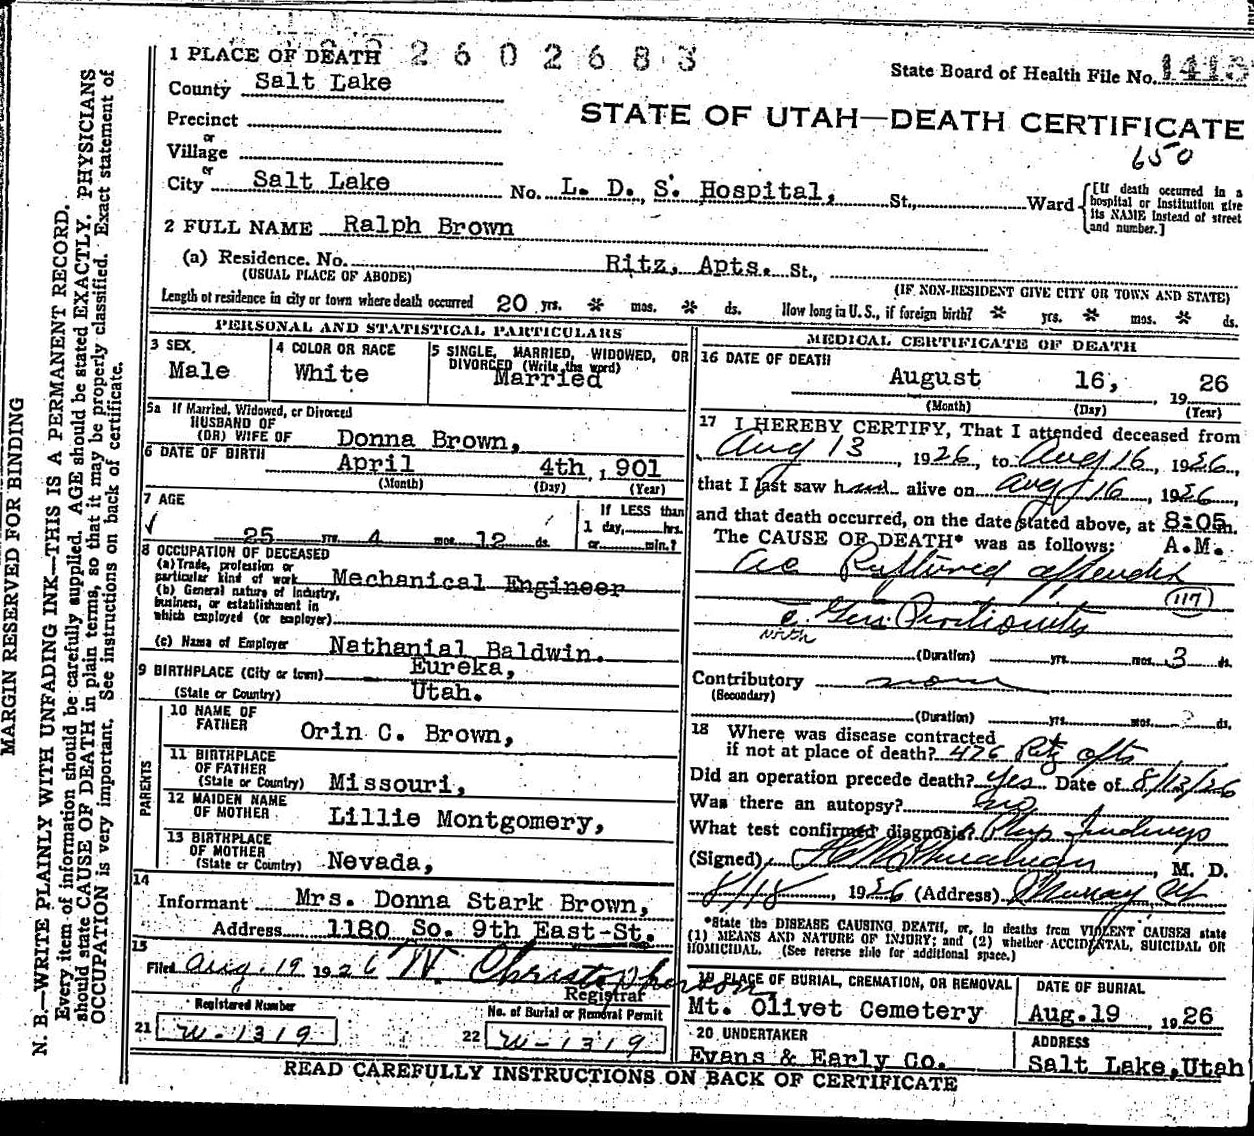 2602683
1 PLACE OF DEATH
State Board of Health File No.
County Salt Lake
STATE OF UTAH—DEATH CERTIFICATE
Precinct
650
or
Village
or
City Salt Lake No. L. D. S. Hospital, St., Ward
[If death occurred in a hospital or institution give its NAME instead of street and number.]
2 FULL NAME Ralph Brown
(a) Residence. No. Ritz, Apts. St.,
(USUAL PLACE OF ABODE) (IF NON-RESIDENT GIVE CITY OR TOWN AND STATE)
Length of residence in city or town where death occurred 20 yrs. * mos. * ds. How long in U. S., if foreign birth? * yrs. * mos. * ds.
PERSONAL AND STATISTICAL PARTICULARS
3 SEX
Male
4 COLOR OR RACE
White
5 SINGLE, MARRIED, WIDOWED, OR
DIVORCED (Write the word)
Married
5a If Married, Widowed, or Divorced
HUSBAND OF
(OR) WIFE OF Donna Brown,
6 DATE OF BIRTH April 4th, 1901
(Month) (Day) (Year)
7 AGE
25 yrs. 4 mos. 12 ds.
If LESS than
1 day, hrs.
or min.?
8 OCCUPATION OF DECEASED
(a) Trade, profession or
particular kind of work Mechanical Engineer
(b) General nature of Industry,
business, or establishment in
which employed (or employer)
(c) Name of Employer Nathanial Baldwin.
9 BIRTHPLACE (City or town) Eureka,
(State or Country) Utah.
PARENTS
10 NAME OF
FATHER Orin C. Brown,
11 BIRTHPLACE
OF FATHER
(State or Country) Missouri,
12 MAIDEN NAME
OF MOTHER Lillie Montgomery,
13 BIRTHPLACE
OF MOTHER
(State or Country) Nevada,
14
Informant Mrs. Donna Stark Brown,
Address 1180 So. 9th East-St.
15
Filed Aug. 19 1926 W. Christopherson
Registrar
Registered Number
21 W-1319
No. of Burial or Removal Permit
22 W-1319
MEDICAL CERTIFICATE OF DEATH
16 DATE OF DEATH
August 16, 1926
(Month) (Day) (Year)
17 I HEREBY CERTIFY, That I attended deceased from
Aug 13, 1926, to Aug 16, 1926,
that I last saw h alive on Aug 16, 1926,
and that death occurred, on the date stated above, at 8:05 m.
The CAUSE OF DEATH* was as follows: A.M.
Ac Ruptured appendix
(117)
c Gen. Peritonitis
with
(Duration) yrs. mos. 3 ds.
Contributory none
(Secondary)
(Duration) yrs. mos. ds.
18 Where was disease contracted
if not at place of death? 476 Ritz Apts
Did an operation precede death? yes Date of 8/13/26
Was there an autopsy? no
What test confirmed diagnosis? Phys Findings
(Signed), M. D.
8/18, 1926 (Address) Murray Ut
*State the DISEASE CAUSING DEATH, or, in deaths from VIOLENT CAUSES state
(1) MEANS AND NATURE OF INJURY; and (2) whether ACCIDENTAL, SUICIDAL OR
HOMICIDAL. (See reverse side for additional space.)
19 PLACE OF BURIAL, CREMATION, OR REMOVAL
Mt. Olivet Cemetery
DATE OF BURIAL
Aug. 19, 1926
20 UNDERTAKER
Evans & Early Co.
ADDRESS
Salt Lake, Utah
READ CAREFULLY INSTRUCTIONS ON BACK OF CERTIFICATE
MARGIN RESERVED FOR BINDING
N. B.—WRITE PLAINLY WITH UNFADING INK—THIS IS A PERMANENT RECORD.
Every item of information should be carefully supplied. AGE should be stated EXACTLY. PHYSICIANS
should state CAUSE OF DEATH in plain terms, so that it may be properly classified. Exact statement of
OCCUPATION is very important. See instructions on back of certificate.